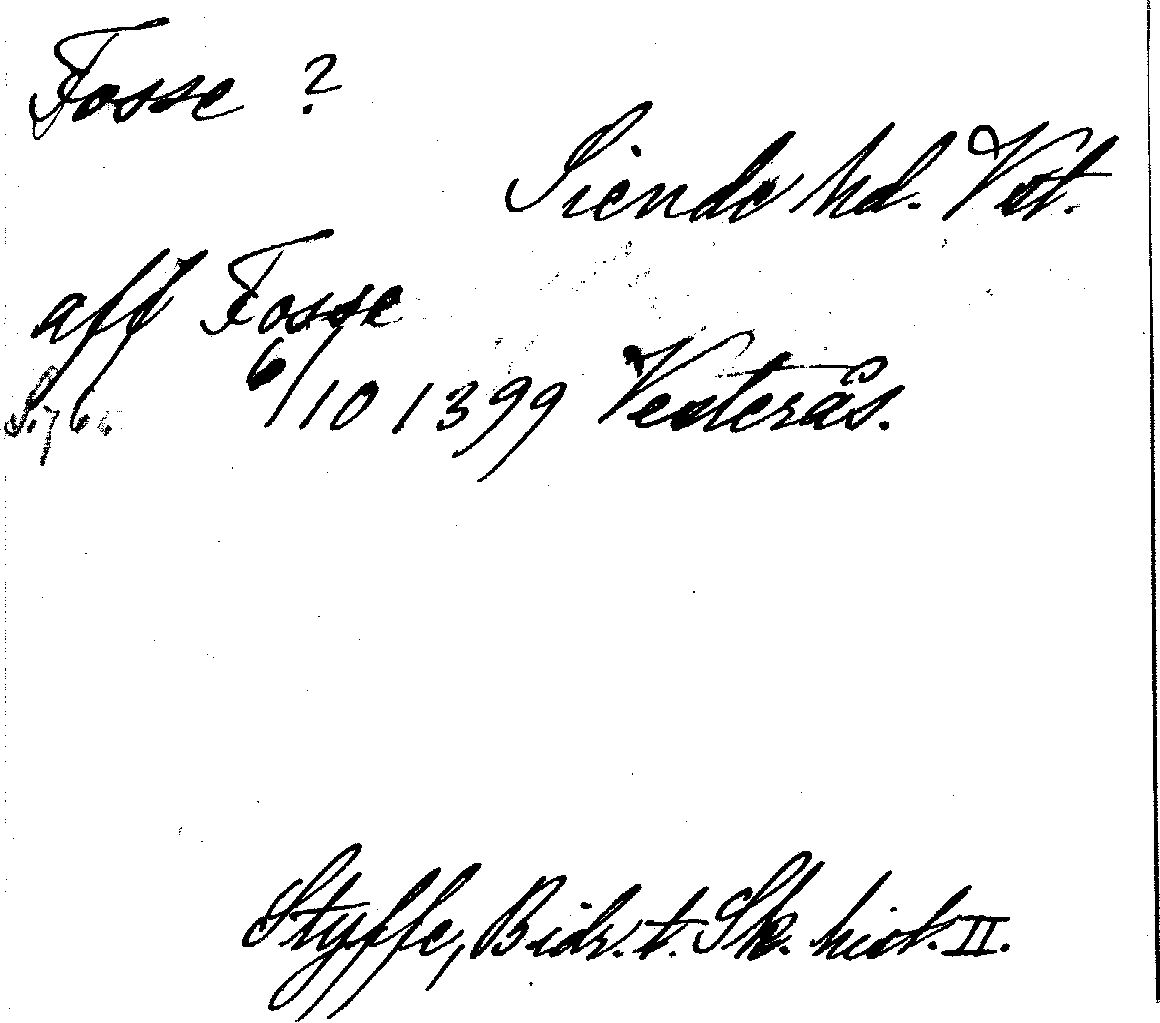 Fosse ?
Siende hd. Vst.
aff Fosse
6/10 1399 Vesterås.
S. 76.
Styffe, Bidr. t. Sk. hist. II.